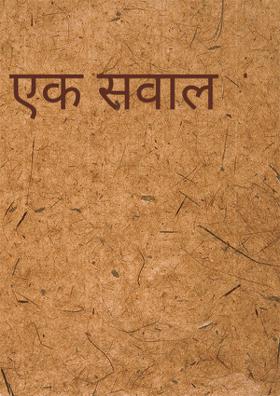 एक सवाल